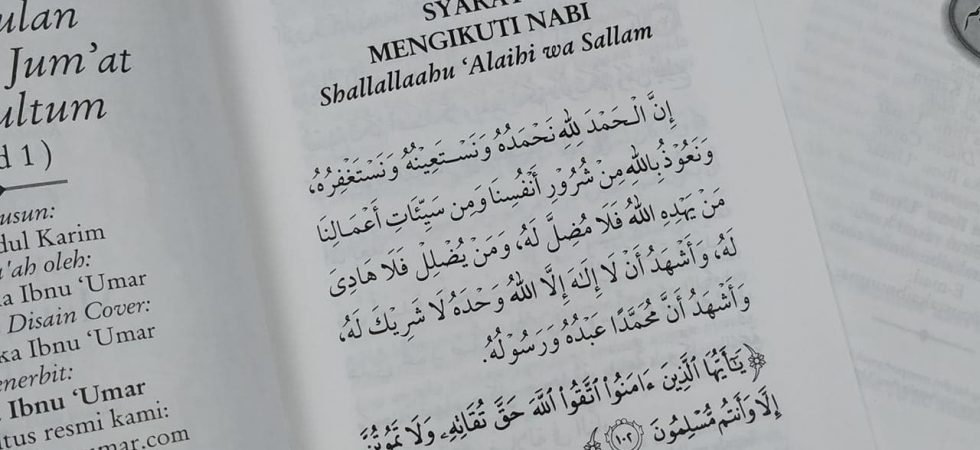 Jum'at
d 1)
dul Karim
oleh:
Ibnu 'Umar
Disain Cover:
ka Ibnu 'Umar
enerbit:
Ibnu 'Umar
resmi kami:
mar.com
MENGIKUTI NABI
Shallallaahu 'Alaihi wa Sallam
إِنَّ الْحَمْدَ لِلّٰهِ نَحْمَدُهُ وَنَسْتَعِيْنُهُ وَنَسْتَغْفِرُهُ،
وَنَعُوْذُ بِاللّٰهِ مِنْ شُرُوْرِ أَنْفُسِنَا وَمِن سَيِّئَاتِ أَعْمَالِنَا
مَنْ يَهْدِهِ اللّٰهُ فَلَا مُضِلَّ لَهُ، وَمَنْ يُضْلِلْ فَلَا هَادِىَ
لَهُ، وَأَشْهَدُ أَنْ لَا إِلَهَ إِلَّا اللّٰهُ وَحْدَهُ لَا شَرِيْكَ لَهُ،
وَأَشْهَدُ أَنَّ مُحَمَّدًا عَبْدُهُ وَرَسُوْلُهُ.
﴿ يَٰٓأَيُّهَا ٱلَّذِينَ ءَامَنُوا۟ ٱتَّقُوا۟ ٱللَّهَ حَقَّ تُقَاتِهِۦ وَلَا تَمُوتُنَّ
إِلَّا وَأَنتُم مُّسْلِمُونَ ١٠٢ ﴾